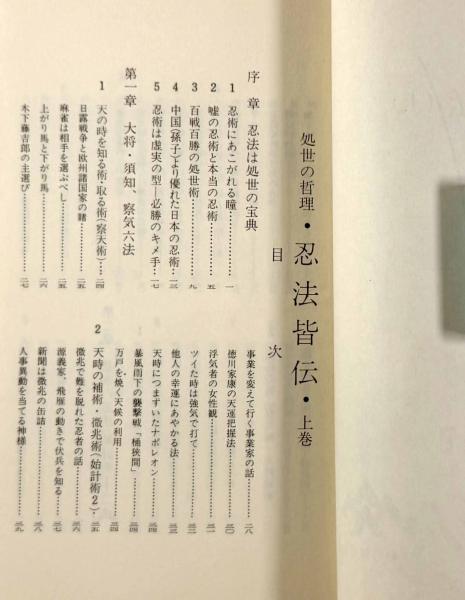 処世の哲理・忍法皆伝・上巻
目次
序章 忍法は処世の宝典
1 忍術にあこがれる瞳…………一
2 嘘の忍術と本当の忍術…………五
3 百戦百勝の処世術…………九
4 中国(孫子)より優れた日本の忍術…一三
5 忍術は虚実の型―必勝のキメ手…一七
第一章 大将・須知、察気六法
1 天の時を知る術・取る術(察天術)…二四
日露戦争と欧州諸国家の賭…………二五
麻雀は相手を選ぶべし…………二五
上がり馬と下がり馬…………二六
木下藤吉郎の主選び…………二七
事業を変えて行く事業家の話…………二八
徳川家康の天運把握法…………三〇
浮気者の女性観…………三一
ツイた時は強気で打て…………三二
他人の幸運にあやかる法…………三三
天時につまずいたナポレオン…………三四
暴風雨下の襲撃戦「桶狭間」…………三四
万戸を焼く天候の利用…………三四
2 天時の補術・微兆術(始計術2)…三五
微兆で難を脱れた忍者の話…………三六
源義家、飛雁の動きで伏兵を知る…………三七
新聞は微兆の缶詰…………三八
人事異動を当てる神様…………三九